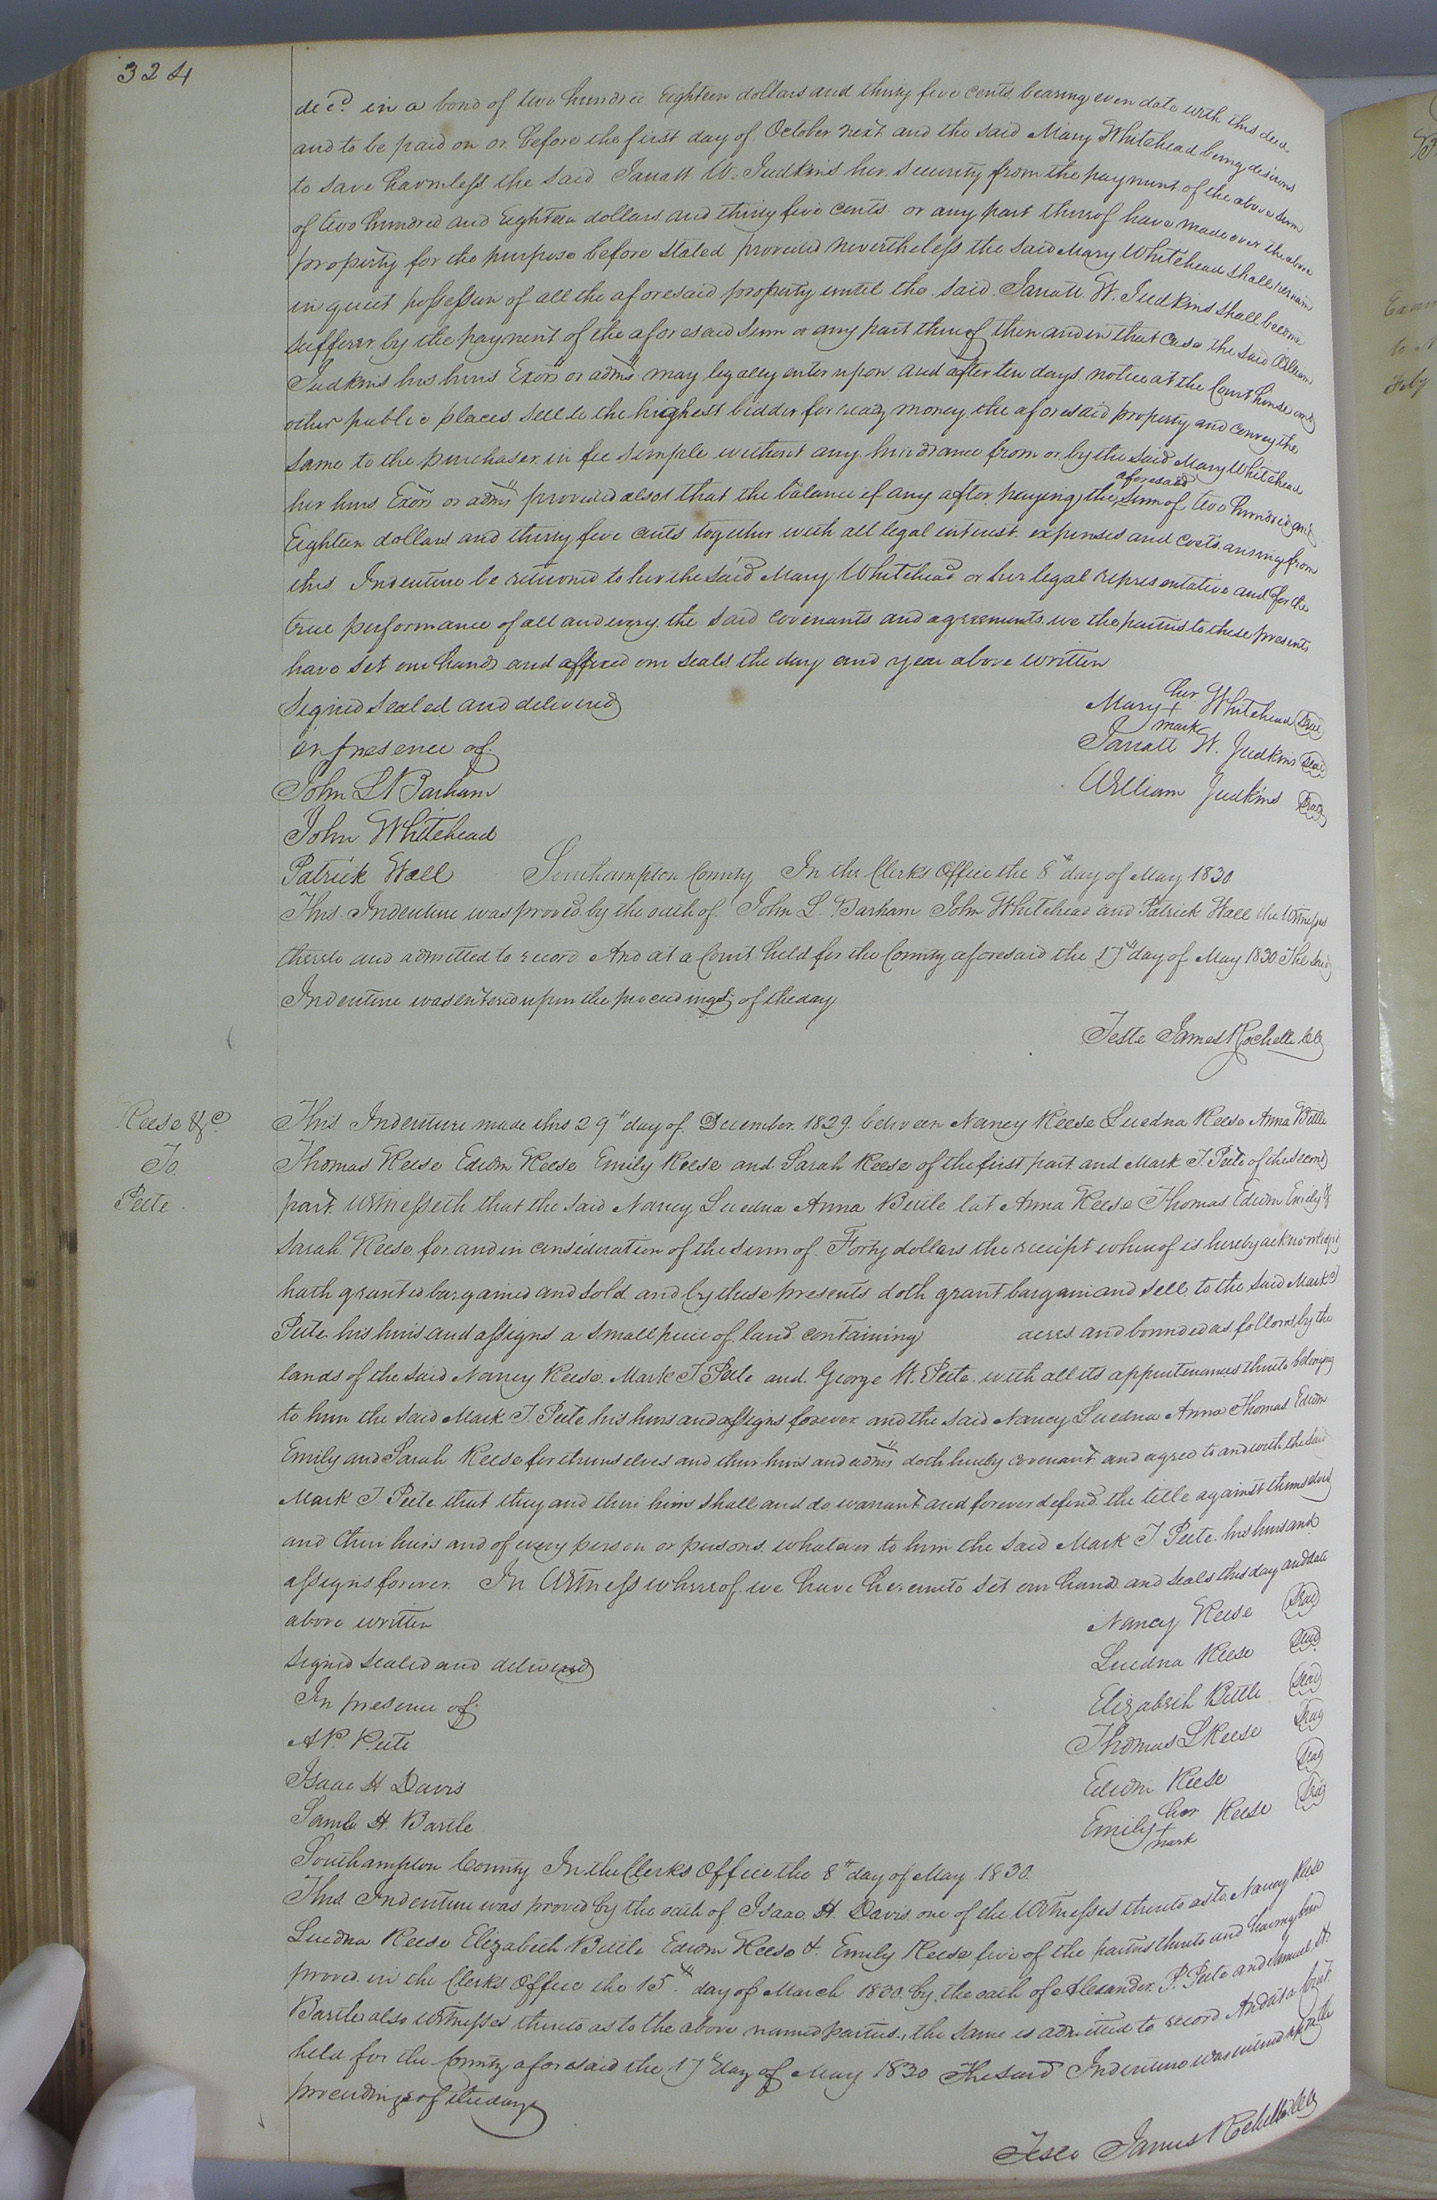 324
decd. in a bond of two hundred Eighteen dollars and thirty five cents bearing even date with this deed
and to be paid on or before the first day of October next and the said Mary Whitehead being desirous
to save harmless the said Jarratt W. Judkins her security from the payment of the above sum
of two hundred and Eighteen dollars and thirty five cents or any part thereof have made over the above
property for the purpose before stated provided nevertheless the said Mary Whitehead shall remain
in quiet possession of all the aforesaid property until the said Jarratt W. Judkins shall become
sufferer by the payment of the aforesaid sum or any part thereof then and in that case the said William
Judkins his heirs Exors or adms may legally enter upon and after ten days notice at the Court house and
other public places sell to the highest bidder for ready money the aforesaid property and convey the
same to the purchaser in fee simple without any hindrance from or by the said Mary Whitehead
her heirs Exors or adms provided also that the balance if any after paying the aforesaid sum of two hundred and
Eighteen dollars and thirty five cents together with all legal interest expenses and costs arising from
this Indenture be returned to her the said Mary Whitehead or her legal representative and for the
true performance of all and every the said covenants and agreements we the parties to these presents
have set our hands and affixed our seals the day and year above written
Signed sealed and delivered
in presence of
Mary her + mark Whitehead Seal
Jarratt W. Judkins Seal
William Judkins Seal
John L Barham
John Whitehead
Patrick Wall Southampton County In the Clerks Office the 8th day of May 1830
This Indenture was proved by the oath of John L. Barham John Whitehead and Patrick Wall the witnesses
thereto and admitted to record And at a Court held for the County aforesaid the 17th day of May 1830 The said
Indenture was entered upon the proceedings of the day
Teste James Rochelle CC
Reese &c.
To
Peete
This Indenture made this 29th day of December 1829 between Nancy Reese Luedna Reese Anna Bittle
Thomas Reese Edwin Reese Emily Reese and Sarah Reese of the first part and Mark T. Peete of the second
part Witnesseth that the said Nancy Luedna Anna Bittle lat Anna Reese Thomas Edwin Emily &
Sarah Reese for and in consideration of the sum of Forty dollars the receipt whereof is hereby acknowledged
hath granted bargained and sold and by these presents doth grant bargain and sell to the said Mark T
Peete his heirs and assigns a small piece of land containing acres and bounded as follows by the
lands of the said Nancy Reese Mark T Peete and George W. Peete with all its appurtenances thereto belonging
to him the said Mark T. Peete his heirs and assigns forever and the said Nancy Luedna Anna Thomas Edwin
Emily and Sarah Reese for themselves and their heirs and adms doth hereby covenant and agree to and with the said
Mark T. Peete that they and their heirs shall and do warrant and forever defend the title against themselves
and their heirs and of every person or persons whatever to him the said Mark T Peete his heirs and
assigns forever. In Witness whereof we have hereunto set our hand and seals this day and date
above written
Signed sealed and delivered
In presence of
A P. Peete
Isaac H Davis
Saml. H. Bartle
Nancy Reese Seal
Luedna Reese Seal
Elizabeth Bittle Seal
Thomas L Reese Seal
Edwin Reese Seal
Emily her + mark Reese Seal
Southampton County In the Clerks Office the 8th day of May 1830.
This Indenture was proved by the oath of Isaac H. Davis one of the witnesses thereto as to Nancy Reese
Luedna Reese Elizabeth Bittle Edwin Reese & Emily Reese five of the parties thereto and having been
proved in the Clerks Office the 15th day of March 1830 by the oath of Alexander P. Peete and Samuel H
Bartle also witnesses thereto as to the above named parties, the same is admitted to record And at a Court
held for the County aforesaid the 17th day of May 1830 The said Indenture was entered upon the
proceedings of the day
Teste James Rochelle CC